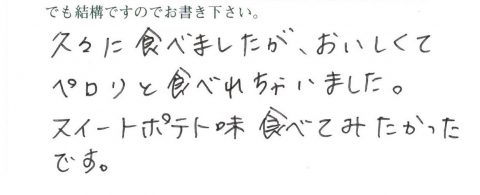 でも結構ですのでお書き下さい。
久々に食べましたが、おいしくて
ペロリと食べれちゃいました。
スイートポテト味食べてみたかった
です。